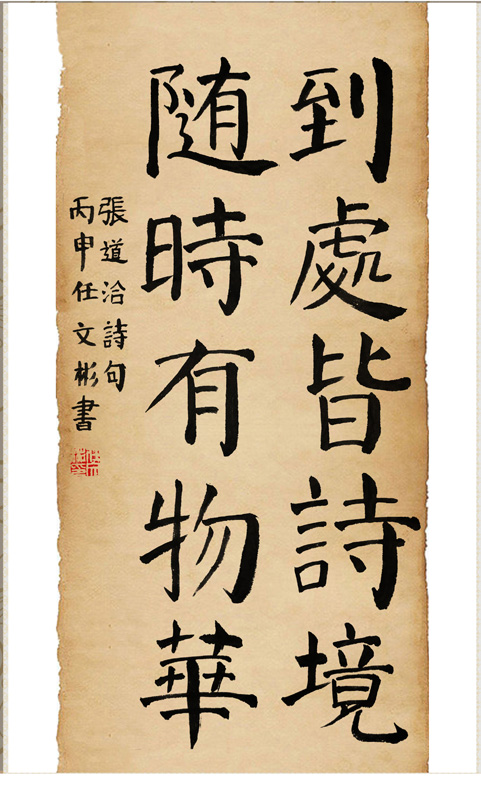 到處皆詩境
随時有物華
張道洽詩句
丙申任文彬書